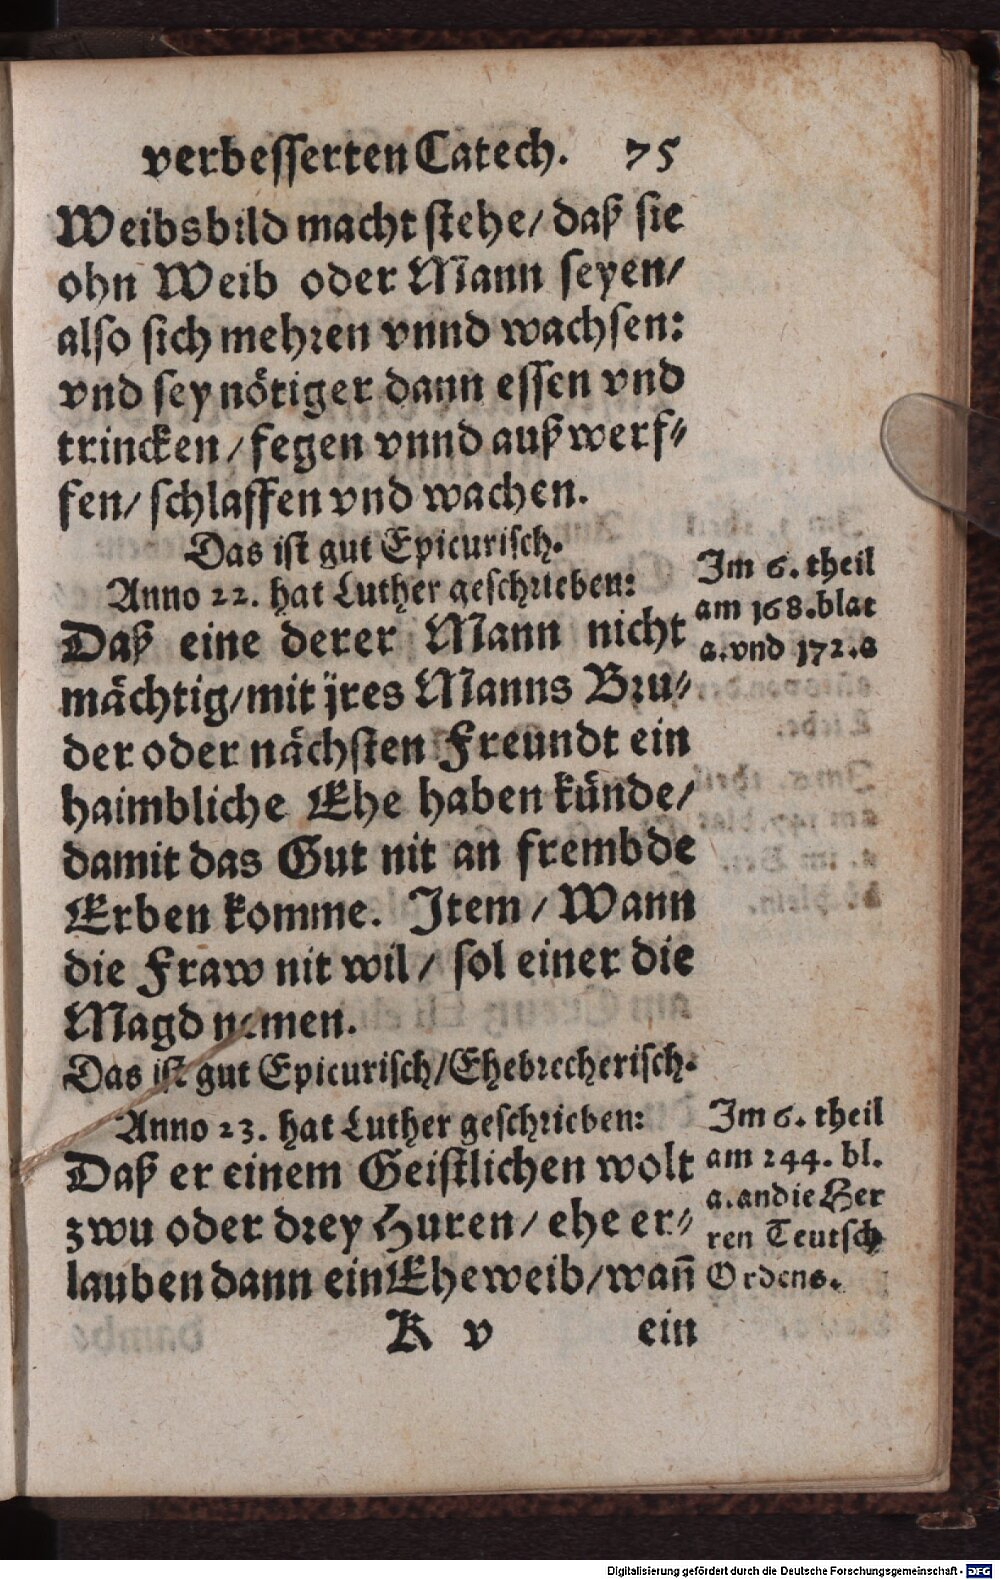 verbesserten Catech. 75
Weibsbild macht stehe/ daß sie
ohn Weib oder Mann seyen/
also sich mehren vnnd wachsen:
vnd sey nötiger dann essen vnd
trincken/ fegen vnnd außwerf-
fen/ schlaffen vnd wachen.
Das ist gut Epicurisch.
Anno 22. hat Luther geschrieben:
Daß eine derer Mann nicht
mächtig/ mit jres Manns Bru-
der oder nächsten Freundt ein
haimbliche Ehe haben künde/
damit das Gut nit an frembde
Erben komme. Item/ Wann
die Fraw nit wil/ sol einer die
Magd nemen.
Das ist gut Epicurisch/Ehebrecherisch.
Anno 23. hat Luther geschrieben:
Daß er einem Geistlichen wolt
zwu oder drey Huren/ ehe er-
lauben dann ein Eheweib/ wañ
K v ein
Im 6. theil
am 168. blat
a. vnd 172. a
Im 6. theil
am 244. bl.
a. an die Her
ren Teutsch
Ordens.
Digitalisierung gefördert durch die Deutsche Forschungsgemeinschaft - DFG